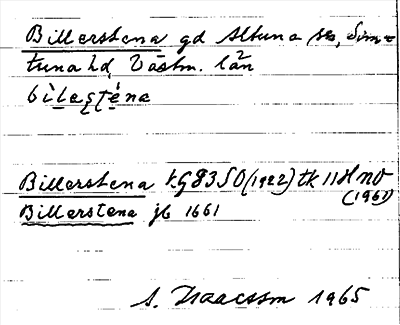 Billerstena gd Altuna sn, Sim=
tuna hd, Västm. län
bìlesténa
Billerstena t.G8350(1922) tk 11H nv
(1961)
Billerstena jb 1661
S. Isacsson 1965